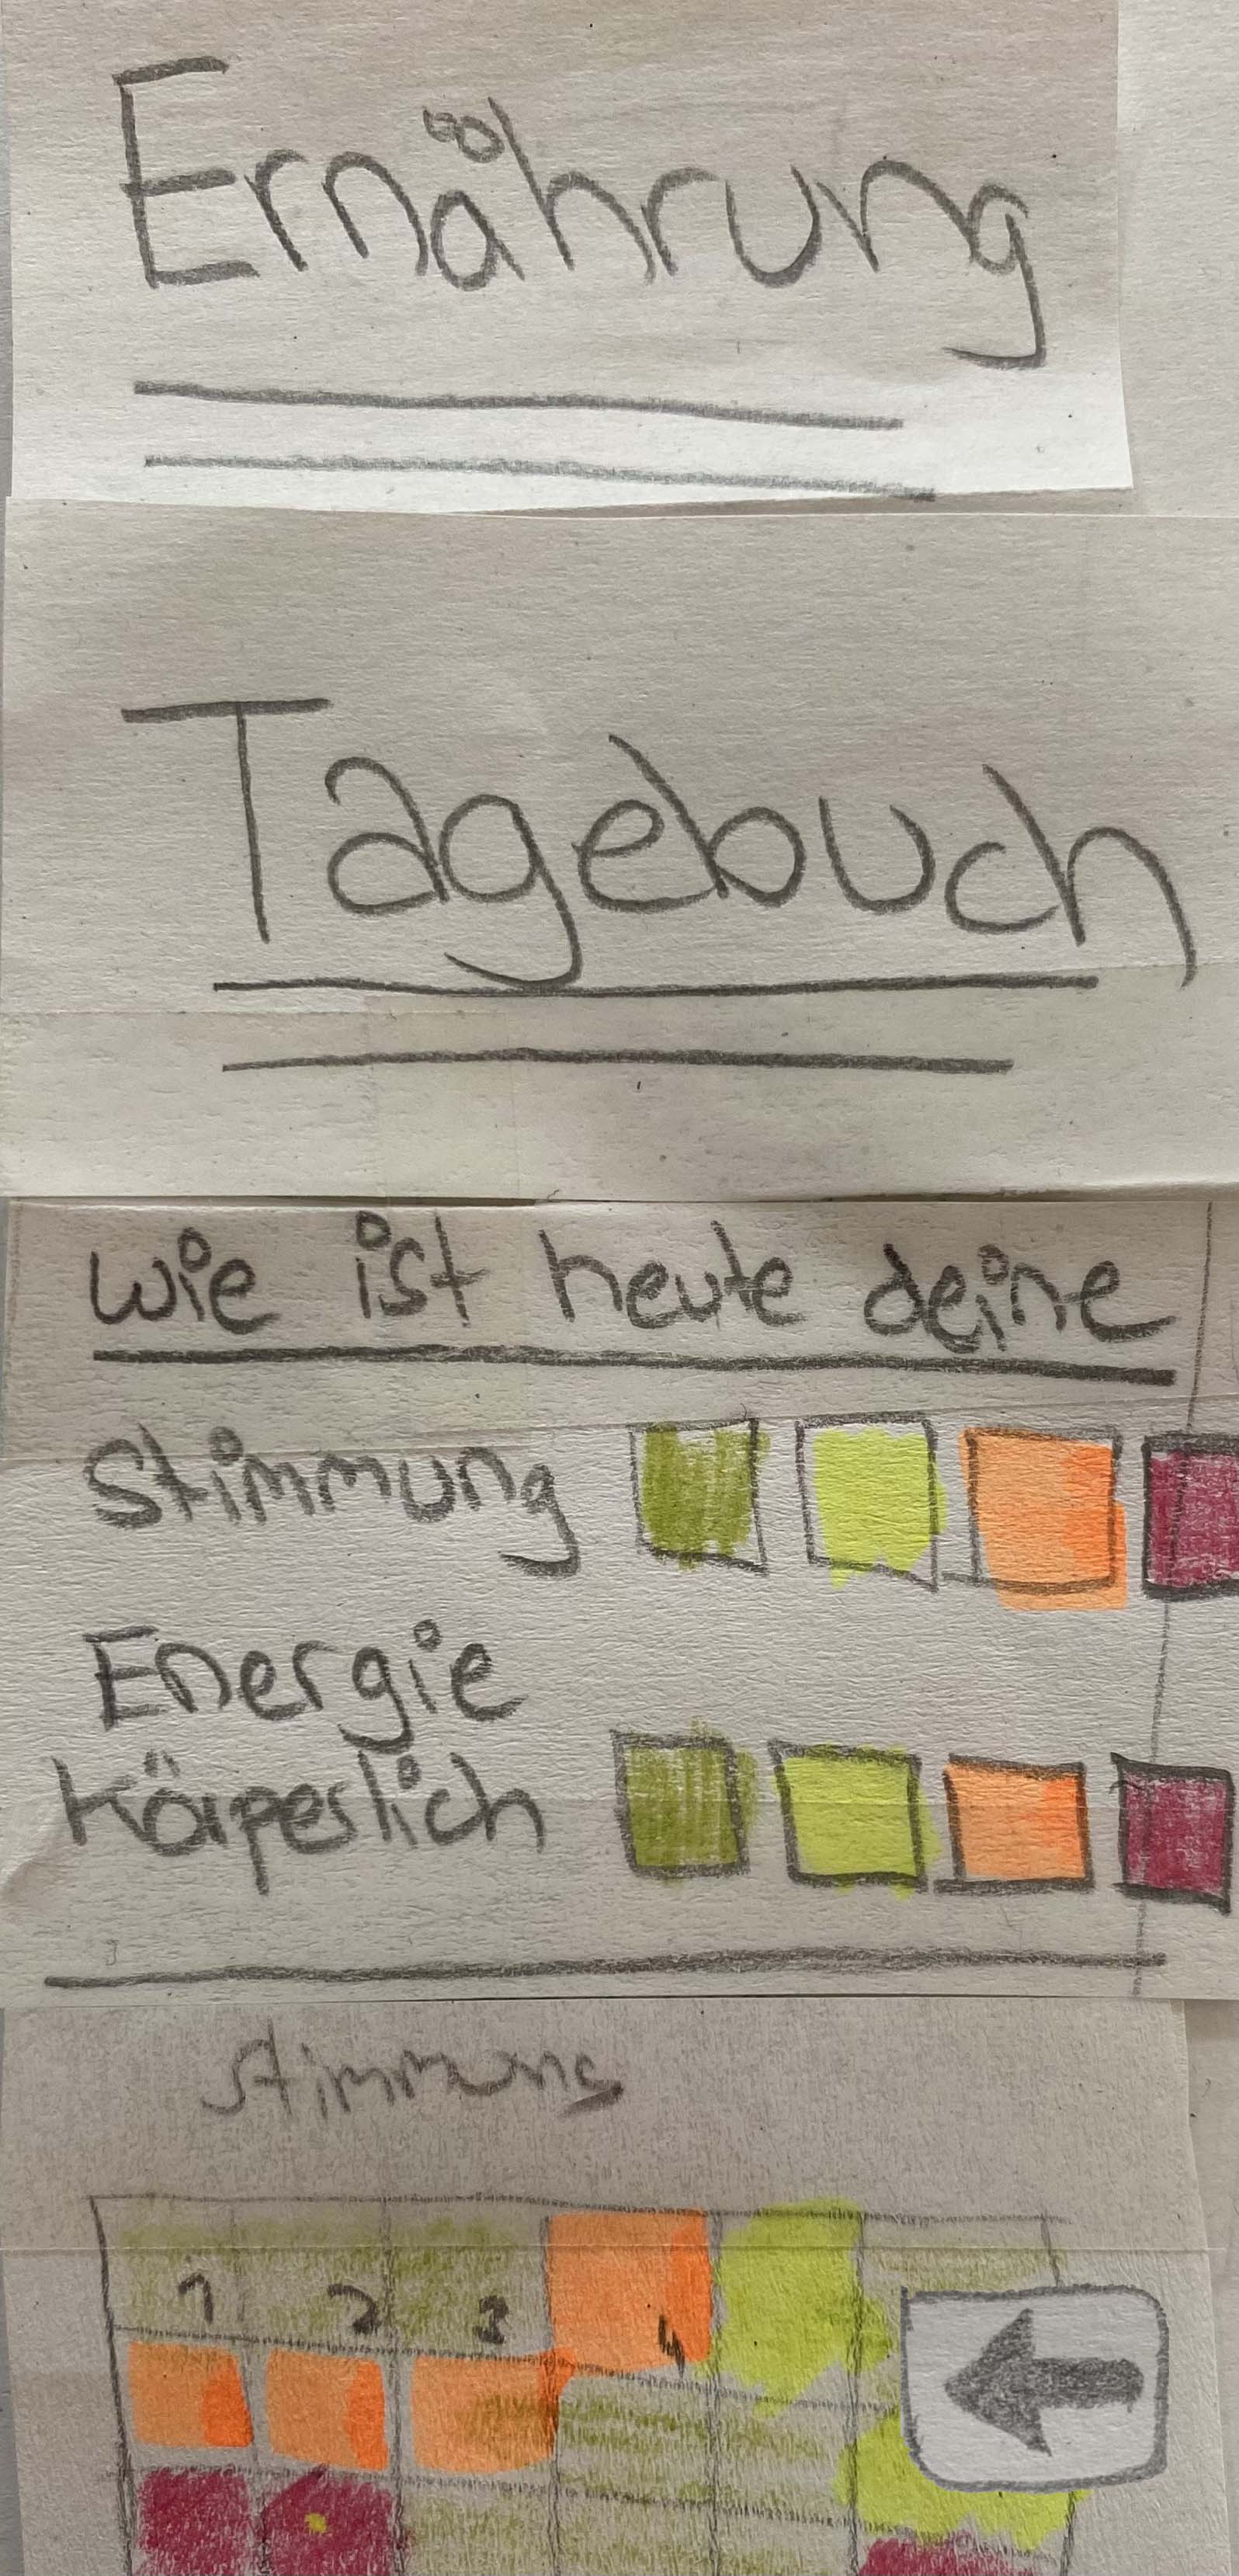 Ernährung
Tagebuch
wie ist heute deine
Stimmung
Energie
Körperlich
Stimmung
1 2 3 4